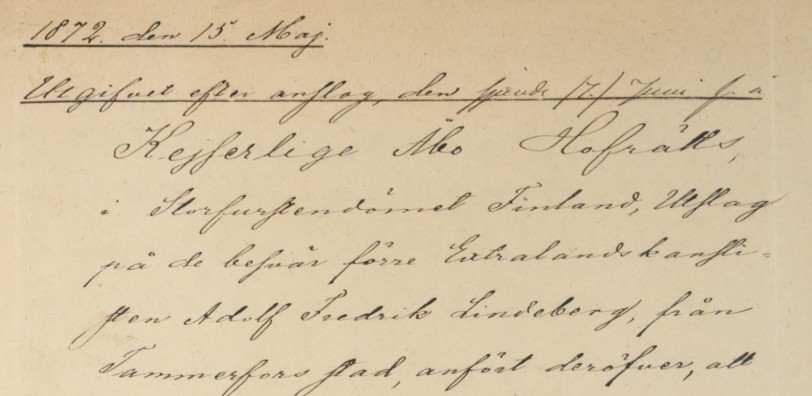 1872. den 15. Maj.
Utgifvet efter anslag, den sjunde (7.) Juni s. å
Kejserlige Åbo Hofrätts,
i Storfurstendömet Finland, Utslag
på de besvär förre Extralandskansli=
sten Adolf Fredrik Lindeberg, från
Tammerfors stad, anfört deröfver, att